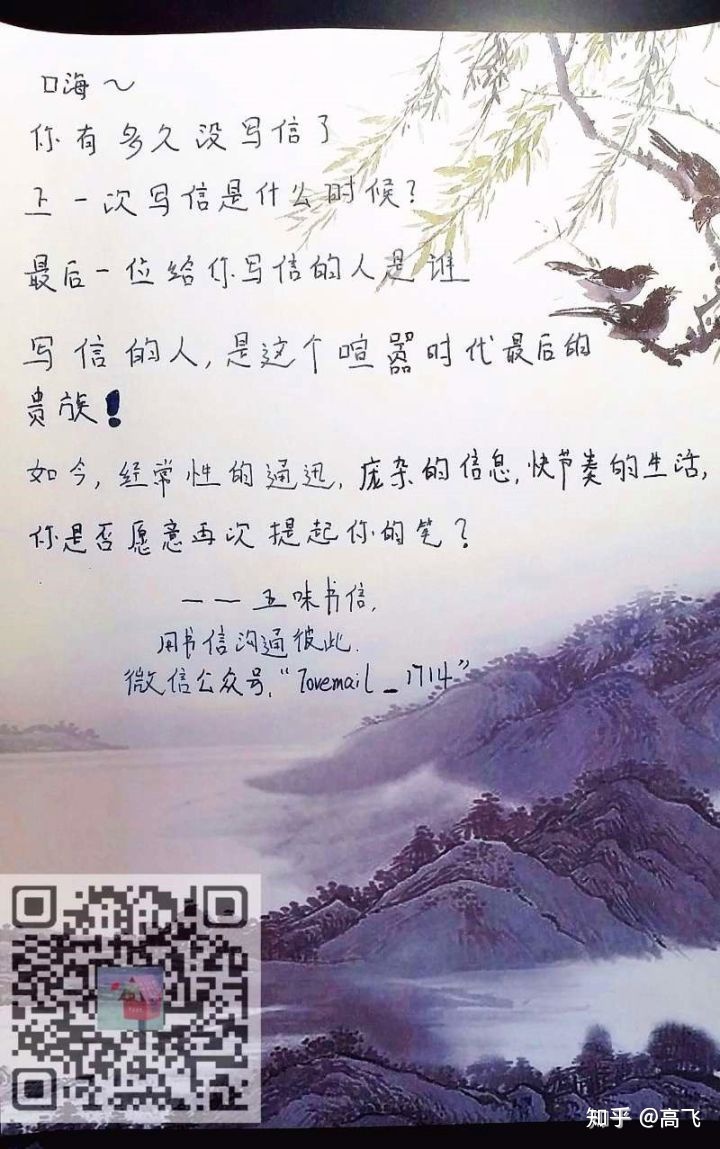 嗨～
你有多久没写信了
上一次写信是什么时候?
最后一位给你写信的人是谁
写信的人,是这个喧嚣时代最后的
贵族!
如今,经常性的通迅,庞杂的信息,快节奏的生活,
你是否愿意再次提起你的笔?
——五味书信.
用书信沟通彼此.
微信公众号,“lovemail_1714”
知乎 @高飞